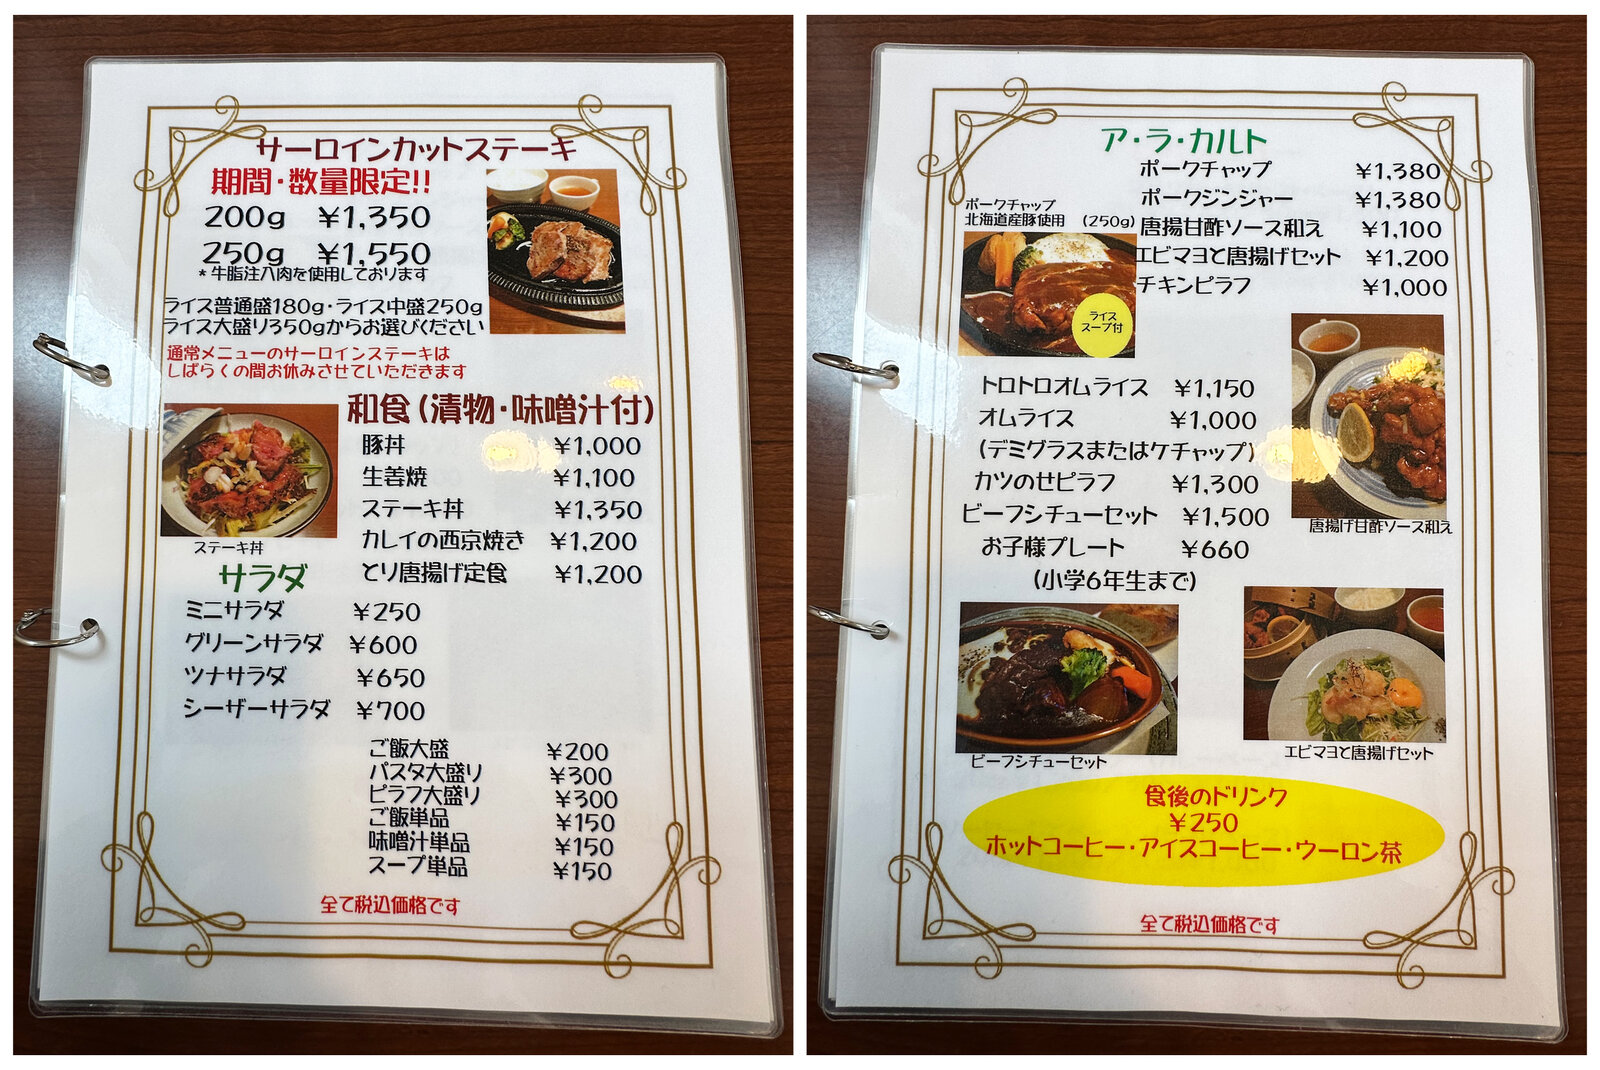 サーロインカットステーキ
期間・数量限定!!
200g ¥1,350
250g ¥1,550
*牛脂注入肉を使用しております
ライス普通盛180g・ライス中盛250g
ライス大盛り350gからお選びください
通常メニューのサーロインステーキは
しばらくの間お休みさせていただきます
和食(漬物・味噌汁付)
豚丼 ¥1,000
生姜焼 ¥1,100
ステーキ丼 ¥1,350
カレイの西京焼き ¥1,200
とり唐揚げ定食 ¥1,200
ステーキ丼
サラダ
ミニサラダ ¥250
グリーンサラダ ¥600
ツナサラダ ¥650
シーザーサラダ ¥700
ご飯大盛 ¥200
パスタ大盛り ¥300
ピラフ大盛り ¥300
ご飯単品 ¥150
味噌汁単品 ¥150
スープ単品 ¥150
全て税込価格です
ア・ラ・カルト
ポークチャップ ¥1,380
ポークジンジャー ¥1,380
唐揚甘酢ソース和え ¥1,100
エビマヨと唐揚げセット ¥1,200
チキンピラフ ¥1,000
ポークチャップ
北海道産豚使用 (250g)
ライス
スープ付
トロトロオムライス ¥1,150
オムライス ¥1,000
(デミグラスまたはケチャップ)
カツのせピラフ ¥1,300
ビーフシチューセット ¥1,500
お子様プレート ¥660
(小学6年生まで)
唐揚げ甘酢ソース和え
ビーフシチューセット
エビマヨと唐揚げセット
食後のドリンク
¥250
ホットコーヒー・アイスコーヒー・ウーロン茶
全て税込価格です